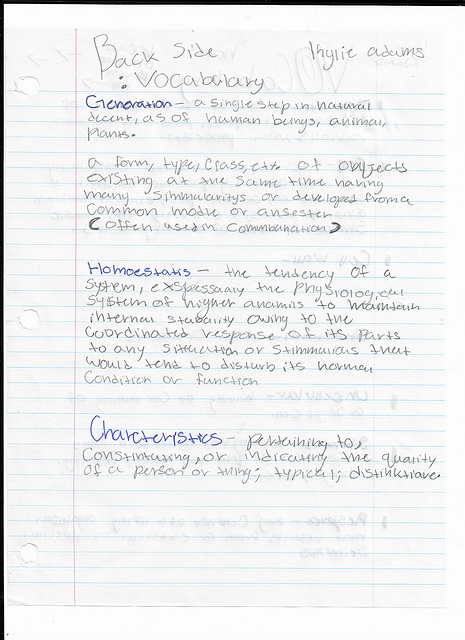 Back Side Khylie adams
: Vocabulary
Generation - a single step in natural
decent, as of human beings, animal,
plants.
a form, type, Class, etc of objects
existing at the same time having
many simmularitys or developed from a
Common mode or ansester
(often used in Combonation)
Homoestatis - the tendency of a
System, exspessally the physiological
System of higher anamils to maintain
internal stability owing to the
Coordinated response of its parts
to any situation or stimmulous that
would tend to disturb its normal
Condition or function
Charcteristics - pertaining to,
Constintating, or indicating the quality
of a person or thing; typical; distinktiave.